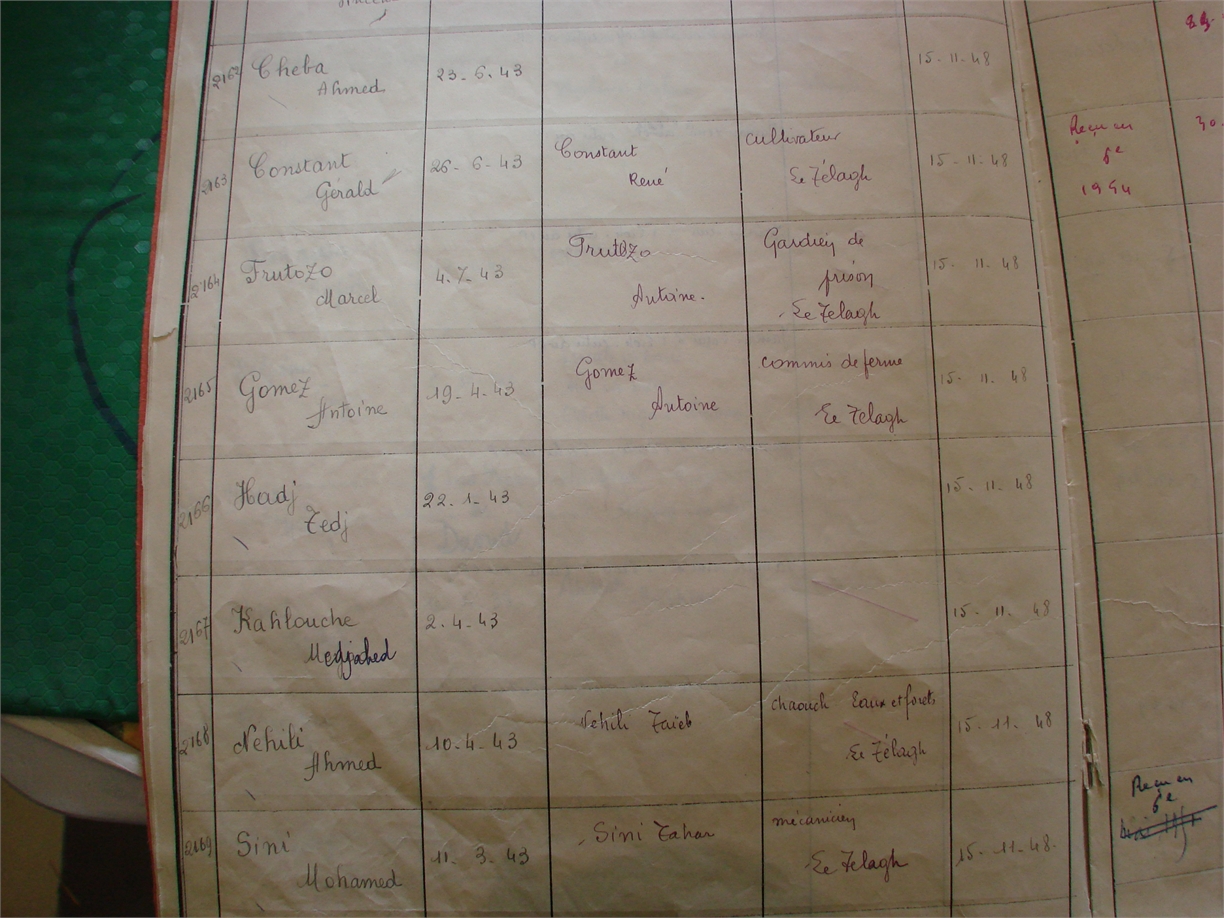 2162 Cheba 23-6-43 15-11-48
Ahmed
2163 Constant 26-6-43 Constant cultivateur 15-11-48 Reçu en 30-
Gérald René Le Télagh 6e
1954
2164 Frutozo 4.7-43 Frutozo Gardien de 15-11-48
Marcel Antoine. prison
Le Télagh
2165 Gomez 19-4-43 Gomez commis de ferme 15-11-48
Antoine Antoine Le Telagh
2166 Hadj 22-1-43 15-11-48
Tedj
2167 Kahlouche 2.4-43 15-11-48
Medjahed
2168 Nehili 10-4-43 Nehili Taïeb chaouch Eaux et forêts 15-11-48
Ahmed Le Télagh
2169 Sini 11.3-43 Sini Tahar mécanicien 15-11-48. Reçu en
Mohamed Le Telagh 6e